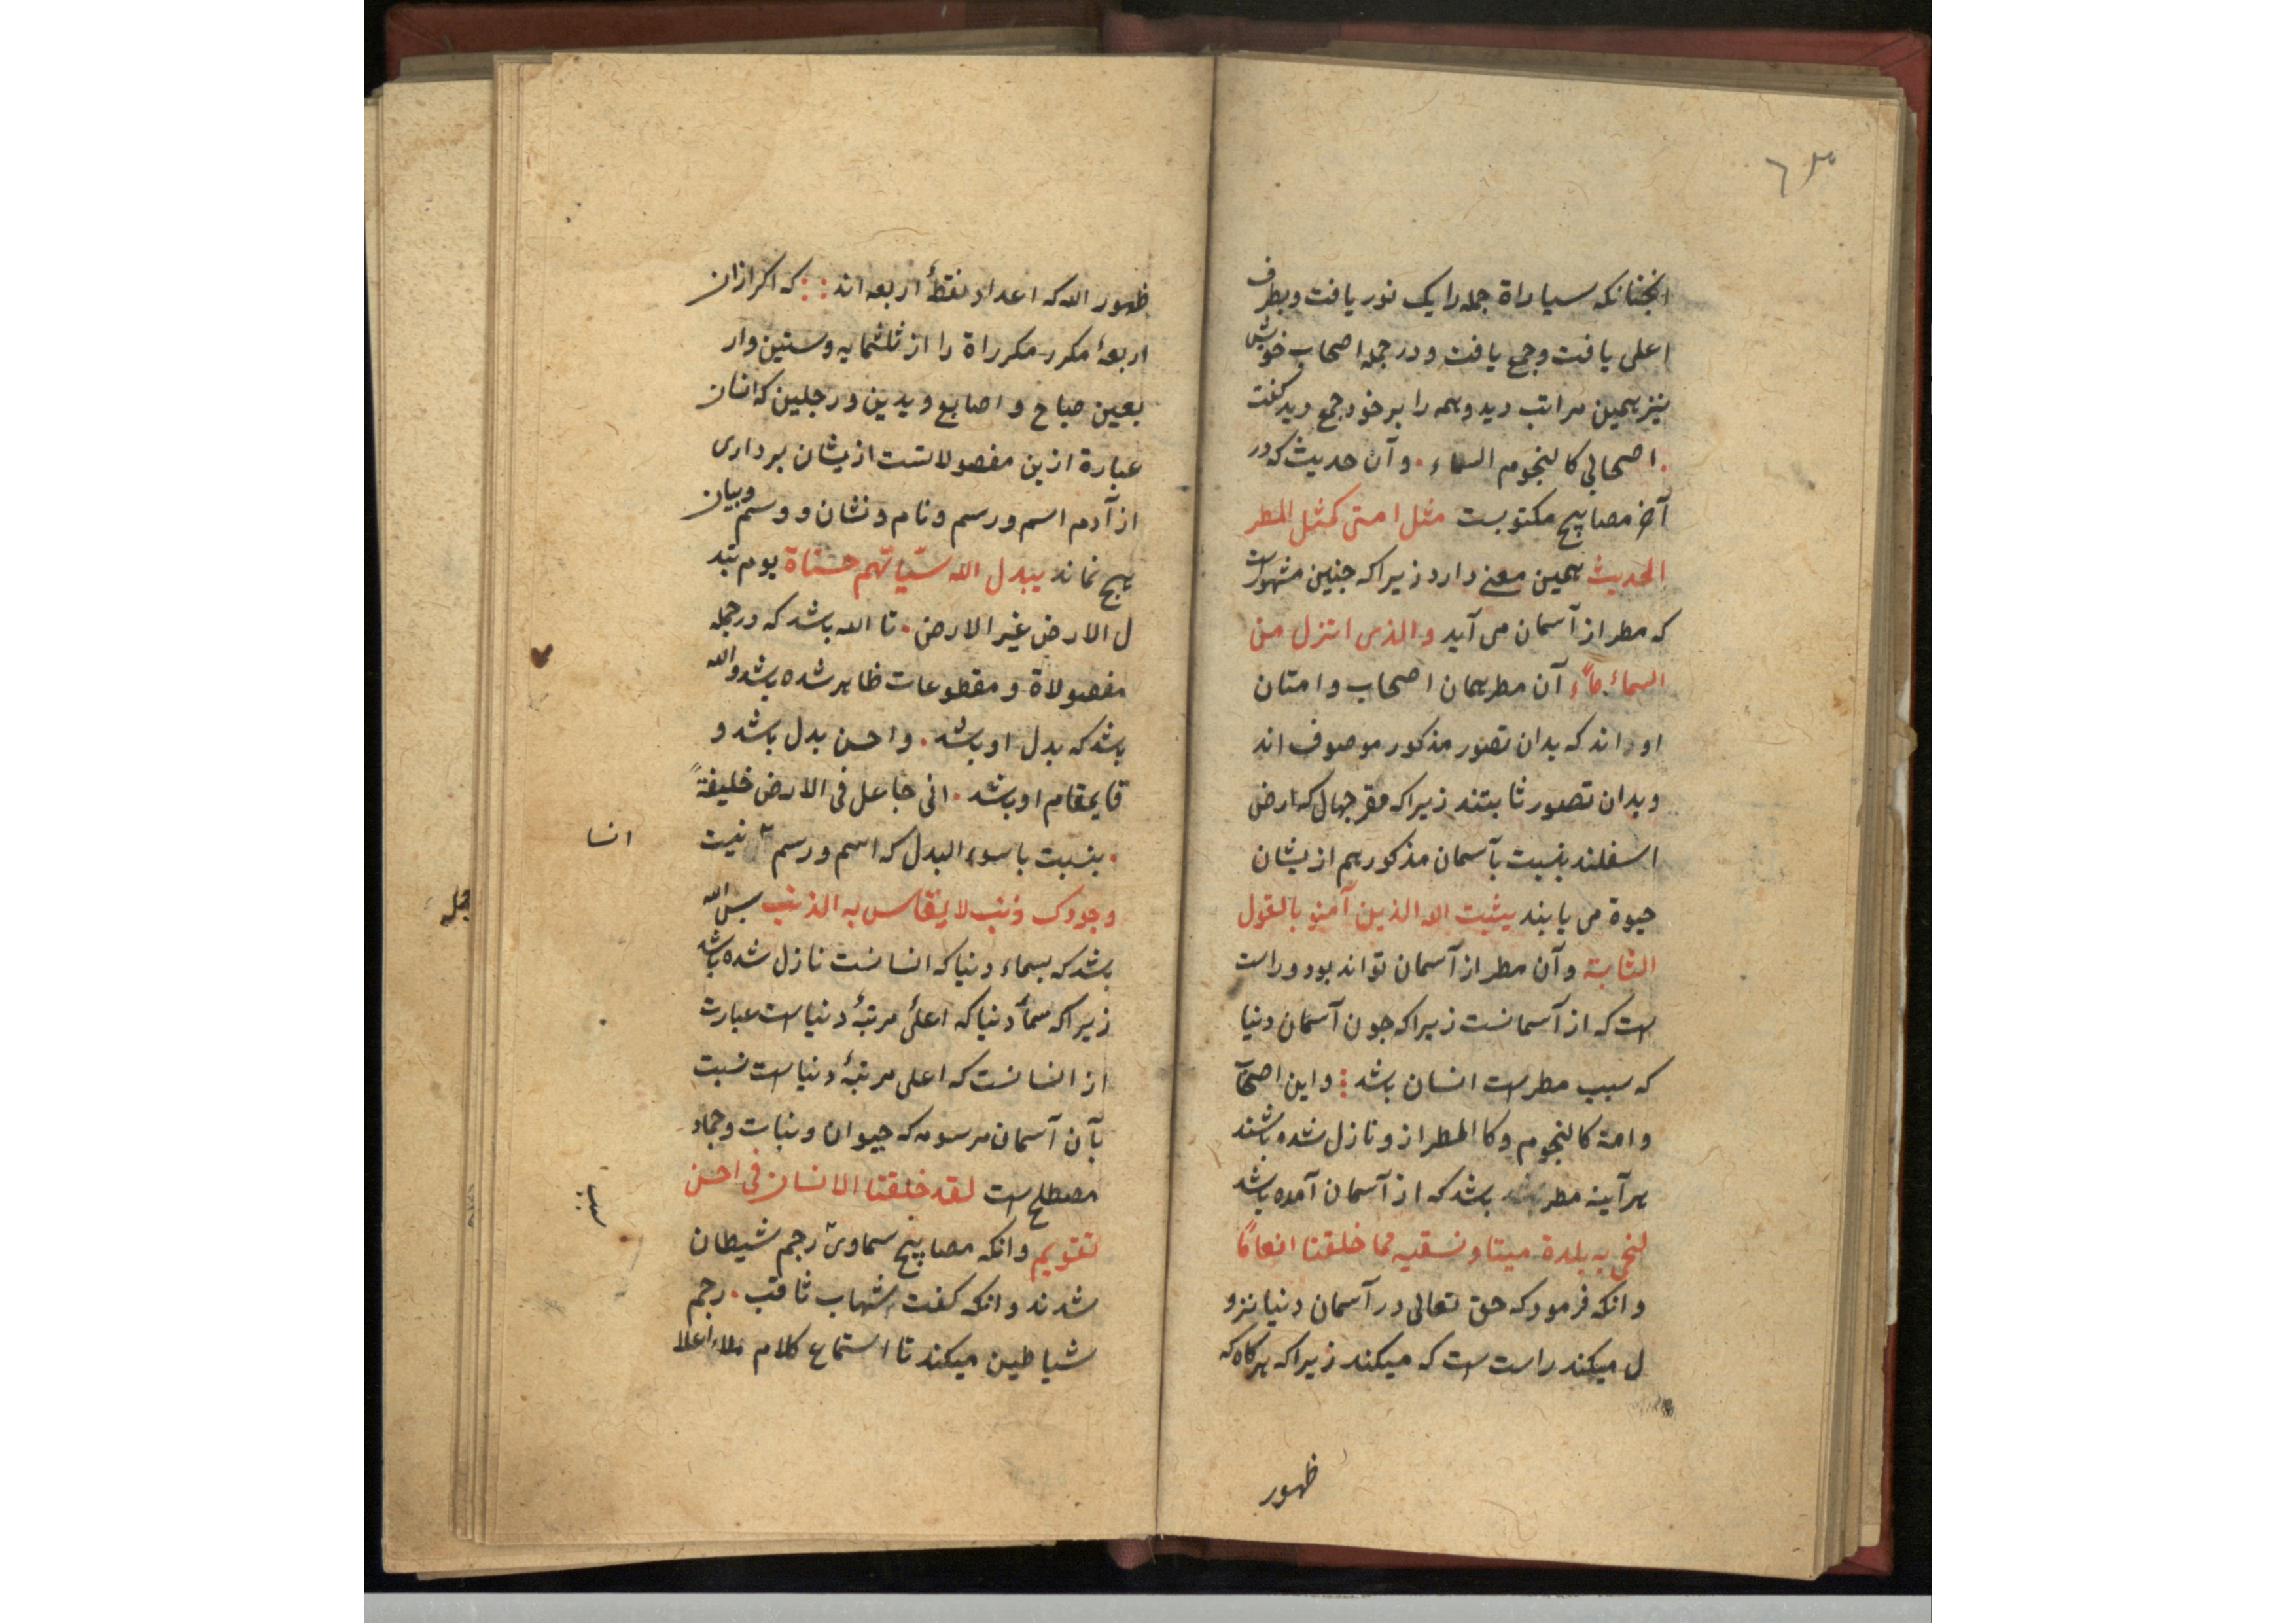 ٦٣
انجنانکه سیاراة جمله را یک نور یافت و بطرف
اعلی یافت و جمع یافت و در جمله اصحاب خویش
نیز همین مراتب دید و همه را بر خود جمع دید و گفت
. اصحابی کالنجوم السماء . و آن حدیث که در
آخر مصابیح مکتوبست مثل امتی کمثل المطر
الحدیث همین معنی دارد زیرا که جنین مشهورست
که مطر از آسمان می آید والذی انزل من
السماء ماًء آن مطر همان اصحاب و امتان
او اند که بدان تصور مذکور موصوف اند
و بدان تصور ثابتند زیرا که مقر جهال که ارض
اسفلند بنسبت بآسمان مذکور هم ازیشان
حیوة می یابند یثبت الله الذین آمنو بالقول
الثابتة و آن مطر از آسمان تواند بود و راست
است که از آسمانست زیرا که جون آسمان دنیا
که سبب مطرست انسان باشد و این اصحاب
و امة کالنجوم و کاالمطر ازو نازل شده باشند
هر آینه مطر باشد که از آسمان آمده باشد
لنحی به بلدة میتا و نسقیه مما خلقنا انعامًا
و انکه فرمود که حق تعالی در آسمان دنیا نزو
ل میکند راست است که میکند زیرا که هرکاه که
ظهور
ظهور الله که اعداد نقطهٔ اربعه اند :: که اکر ازان
اربعهٔ مکرر مکرراة را از ثلثمایه و ستین و ار
بعین صباح و اصابع و یدین و رجلین که انسان
عبارة ازین مفصولاتست ازیشان برداری
از آدم اسم و رسم و نام و نشان و وسم و بیان
هیچ نماند یبدل الله سیّاتهم حسناة یوم تبد
ل الارض غیر الارض . تا الله باشد که در جمله
مفصولاة و مقطوعات ظاهر شده باشد و الله
باشد که بدل او باشد . و احسن بدل باشد و
قایمقام او باشد . انی جاعل فی الارض خلیفةً
. بنسبت باسوء البدل که اسم و رسم نیست
انسا
وجودک ذنب لا یقاس به الذنب بس الله
باشد که بسماء دنیا که انسانست نازل شده باشد
زیرا که سمأ دنیا که اعلیٔ مرتبهٔ دنیاست عبارت
از انسانست که اعلی مرتبهٔ دنیاست نسبت
بآن آسمان مرسومه که حیوان و نبات و جماد
مصطلح است لقد خلقنا الانسان فی احسن
تقویم و انکه مصابیح سماوی رجم شیطان
شدند و انکه کفت شهاب ثاقب . رجم
شیاطین میکند تا استماع کلام ملاء اعلا
جمله